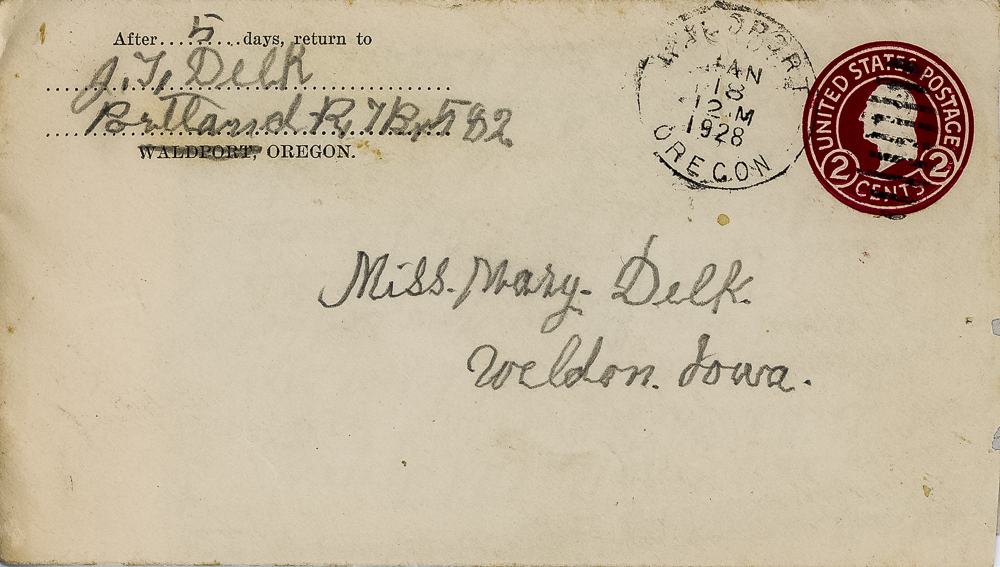 After....5....days, return to
J. T. Delk
Portland R. 7 Bx 582
WALDPORT, OREGON.
WALDPORT
JAN
18
12 M
1928
OREGON
UNITED STATES POSTAGE
2 CENTS 2
Miss. Mary. Delk.
Weldon. Iowa.